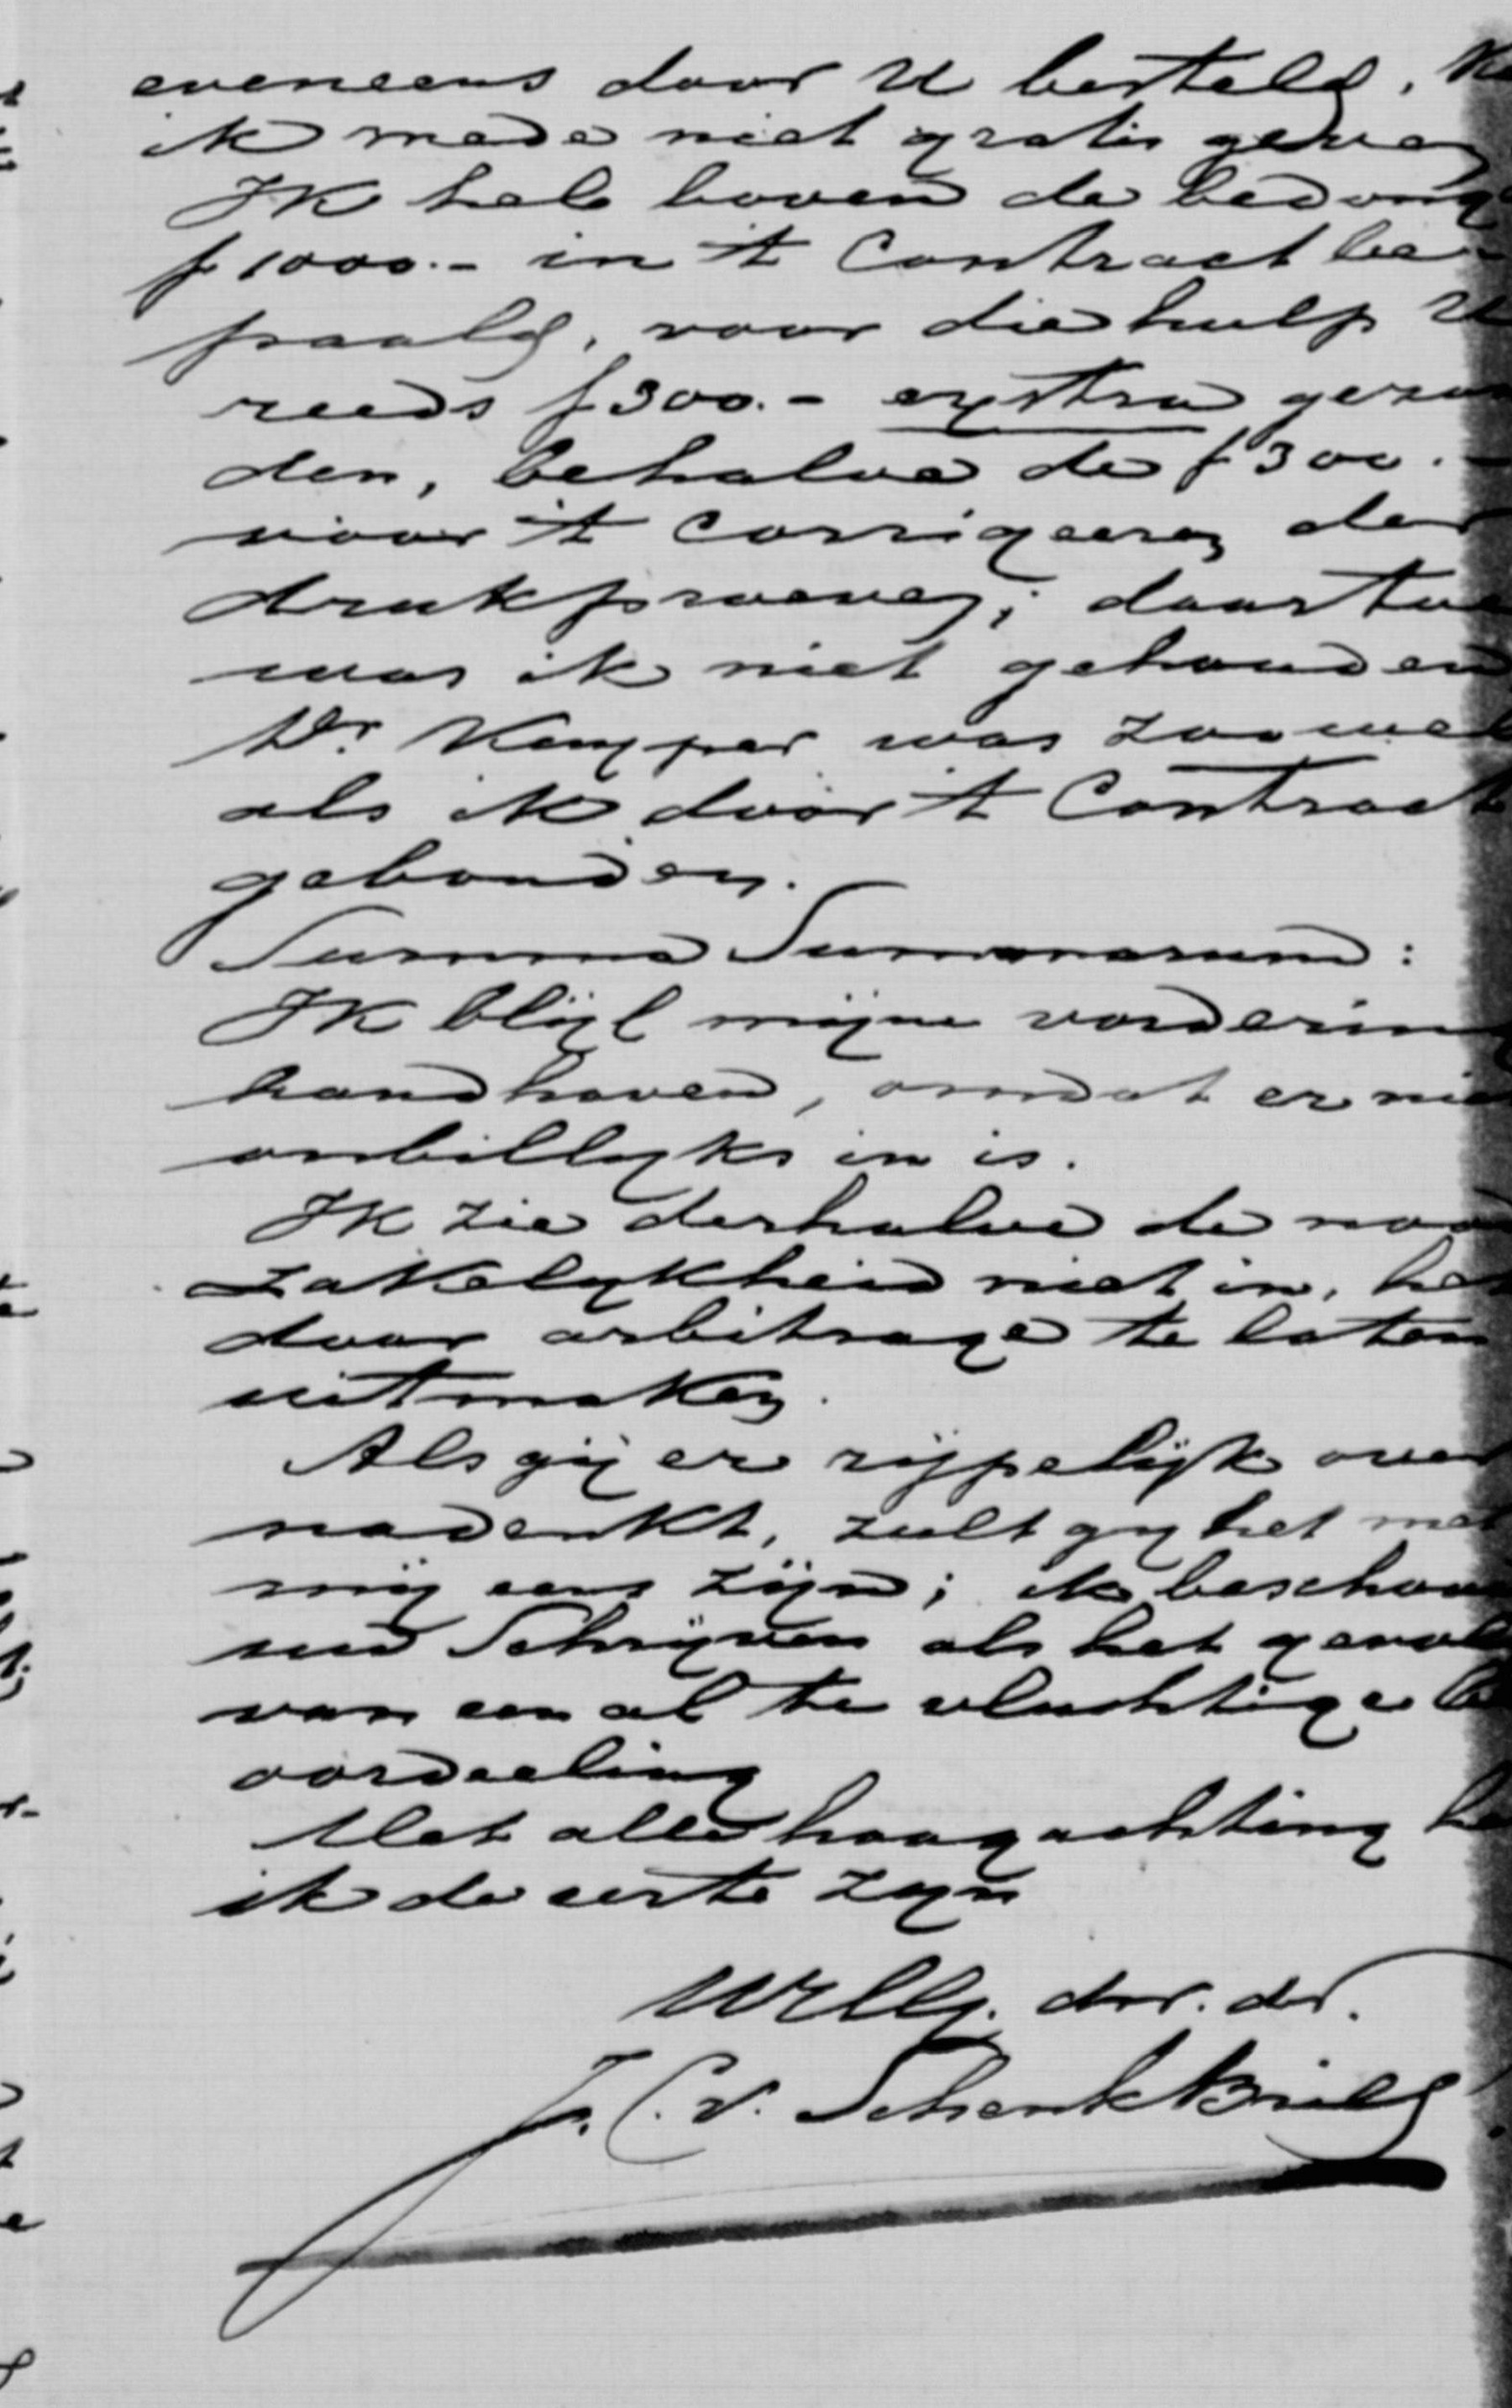 eveneens door U besteld,
ik mede niet gratis geven
Ik heb boven de bedong
f 1000.- in 't Contract be-
paald, voor die hulp U
reeds f 300.- extra gezon
den, behalve de f 300.-
voor 't corrigeeren der
drukproeven; daartoe
was ik niet gehouden
Dr. Kemper was zoowel
als ik door 't Contract
gebonden.
Summa Summarum:
Ik blijf mijne vordering
handhaven, omdat er nie
onbillijks in is.
Ik zie derhalve de nood
zakelykheid niet in, het
door arbitrage te laten
uitmaken.
Als gij er rijpelijk over
nadenkt, zult gy het met
mij eens zijn; ik beschouw
uw Schrijven als het gevolg
van een al te vluchtige be
oordeeling
Met alle hoogachting he
ik de eer te zyn
UWEllg. dnr. dr.
J. C. v. Schenk Brill